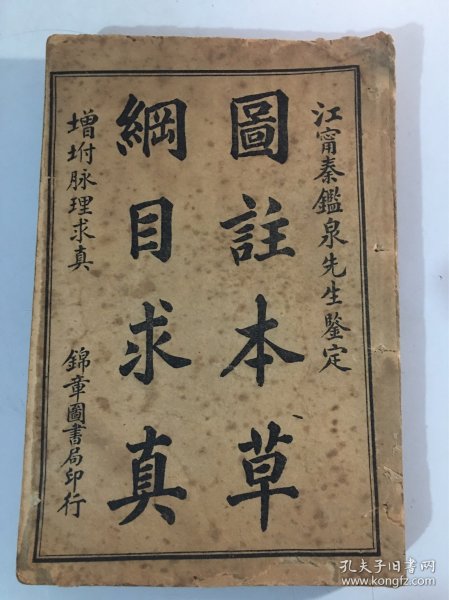 江甯秦鑑泉先生鑒定
圖註本草
綱目求真
增坿脉理求真
錦章圖書局印行
孔夫子旧书网
www.kongfz.com